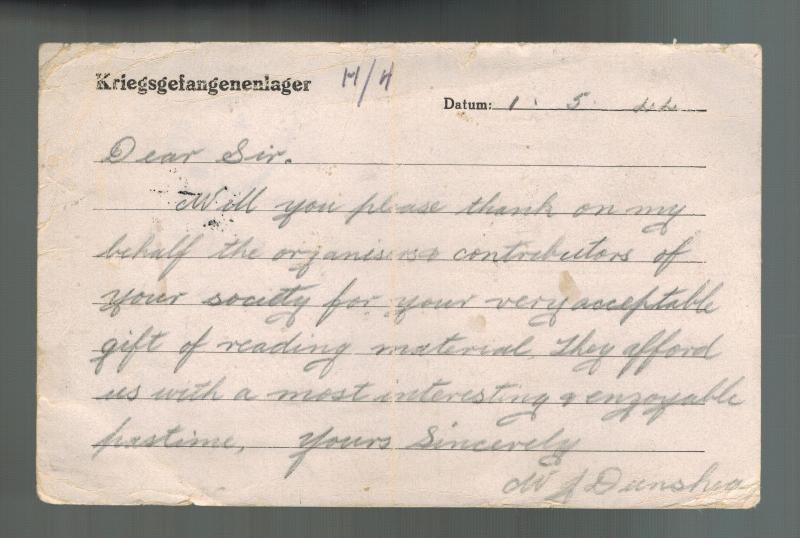 Kriegsgefangenenlager H/4
Datum: 1. 5. 44
Dear Sir.
Will you please thank on my
behalf the organisers & contributors of
your society for your very acceptable
gift of reading material. They afford
us with a most interesting & enjoyable
pastime, Yours Sincerely
W J Dunshea